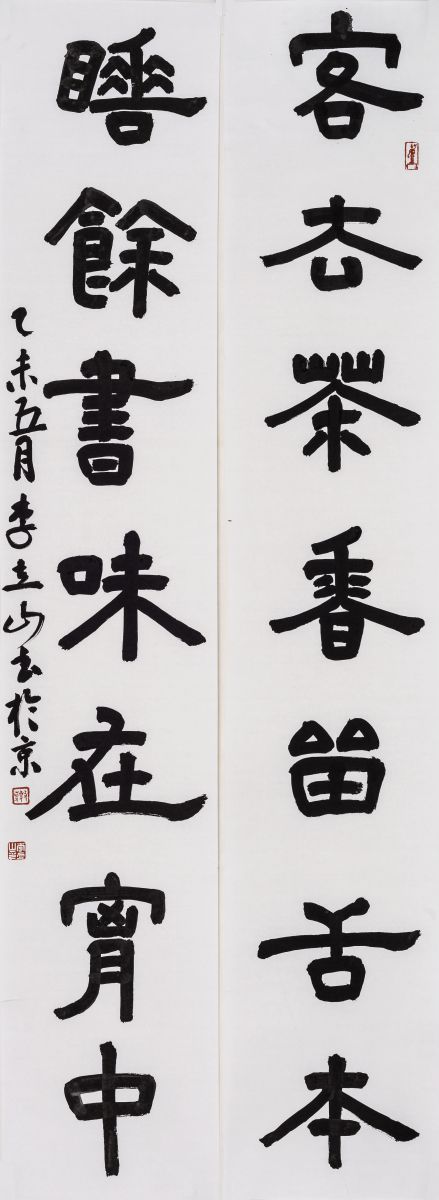 客去茶香留舌本
睡餘書味在胷中
乙未五月李立山书於京